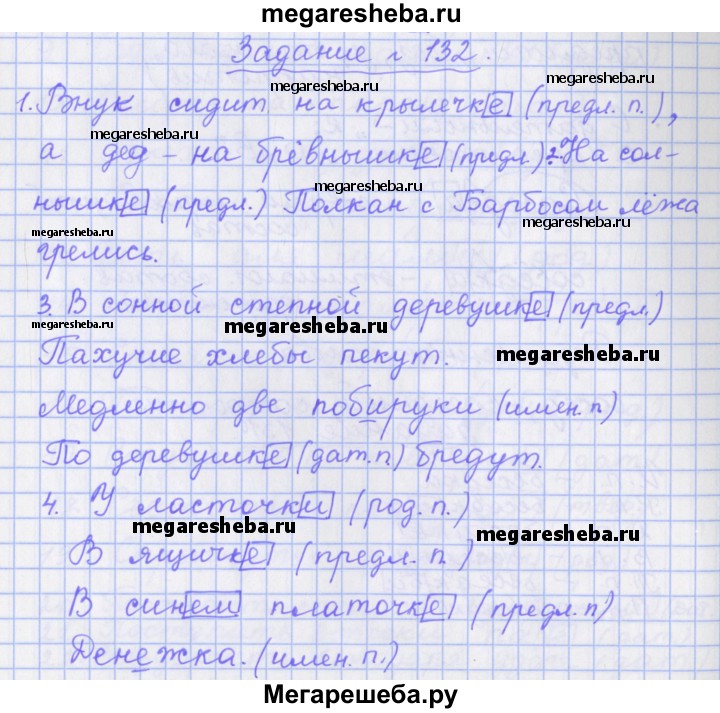 megaresheba.ru
Задание г 132.
megaresheba.ru
1. Внук сидит на крылечке (предл. п.),
megaresheba.ru
megaresheba.ru
а дед - на брёвнышке (предл.) 2. На сол-
megaresheba.ru
нышке (предл.) Полкан с Барбосом лёжа
megaresheba.ru
megaresheba.ru
грелись.
3. В сонной степной деревушке (предл.)
megaresheba.ru
megaresheba.ru
megaresheba.ru
Пахучие хлебы пекут.
Медленно две побируки (имен. п)
По деревушке (дат. п) бредут.
4. У ласточки (род. п.)
megaresheba.ru
megaresheba.ru
В ящичке (предл. п.)
В синем платочке (предл. п)
Денежка. (имен. п.)
Мегарешеба.ру